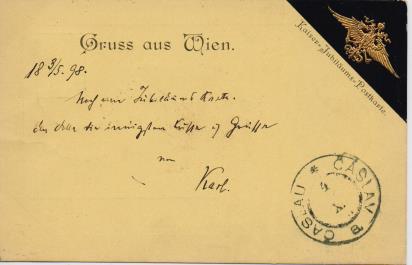 Gruss aus Wien.
Kaiser-Jubiläums-Postkarte.
18 3/5. 98.
Noch eine Jubiläums Karte.
die innigsten Küsse & Grüsse
von
Karl.
ČÁSLAV
ČASLAU